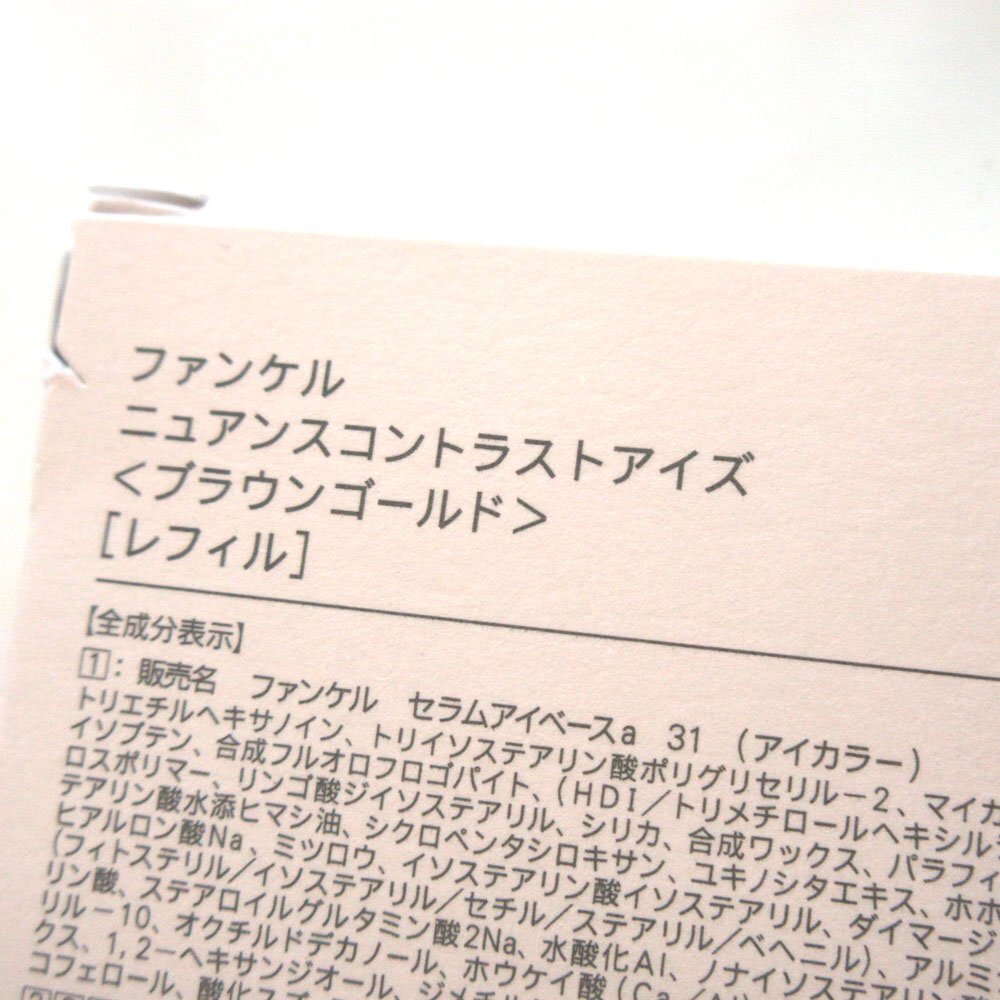 ファンケル
ニュアンスコントラストアイズ
<ブラウンゴールド>
[レフィル]
【全成分表示】
1:販売名 ファンケル セラムアイベースa 31 (アイカラー)
トリエチルヘキサノイン、トリイソステアリン酸ポリグリセリル－2、マイカ
イソブテン、合成フルオロフロゴパイト、(HDI/トリメチロールヘキシル
ロスポリマー、リンゴ酸ジイソステアリル、シリカ、合成ワックス、パラフィ
テアリン酸水添ヒマシ油、シクロペンタシロキサン、ユキノシタエキス、ホホ
ヒアルロン酸Na、ミツロウ、イソステアリン酸イソステアリル、ダイマージ
(フィトステリル/イソステアリル/セチル/ステアリル/ベヘニル)、アルミ
リン酸、ステアロイルグルタミン酸2Na、水酸化Al、ノナイソステアリン
リル－10、オクチルドデカノール、ホウケイ酸(Ca/Al)
クス、1,2－ヘキサンジオール、ジメチ
コフェロール、酸化スズ